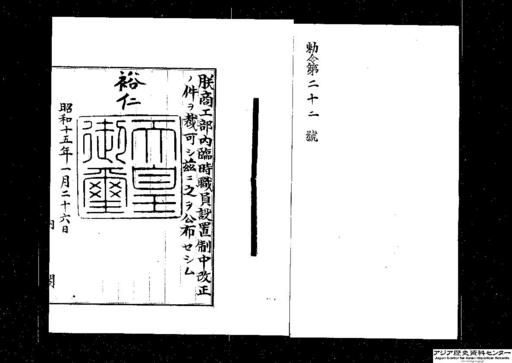 勅令第二十二號
朕商工部內臨時職員設置制中改正
ノ件ヲ裁可シ茲ニ之ヲ公布セシム
裕仁
天皇御璽
昭和十五年一月二十六日
內閣
アジア歴史資料センター
Japan Center for Asian Historical Records